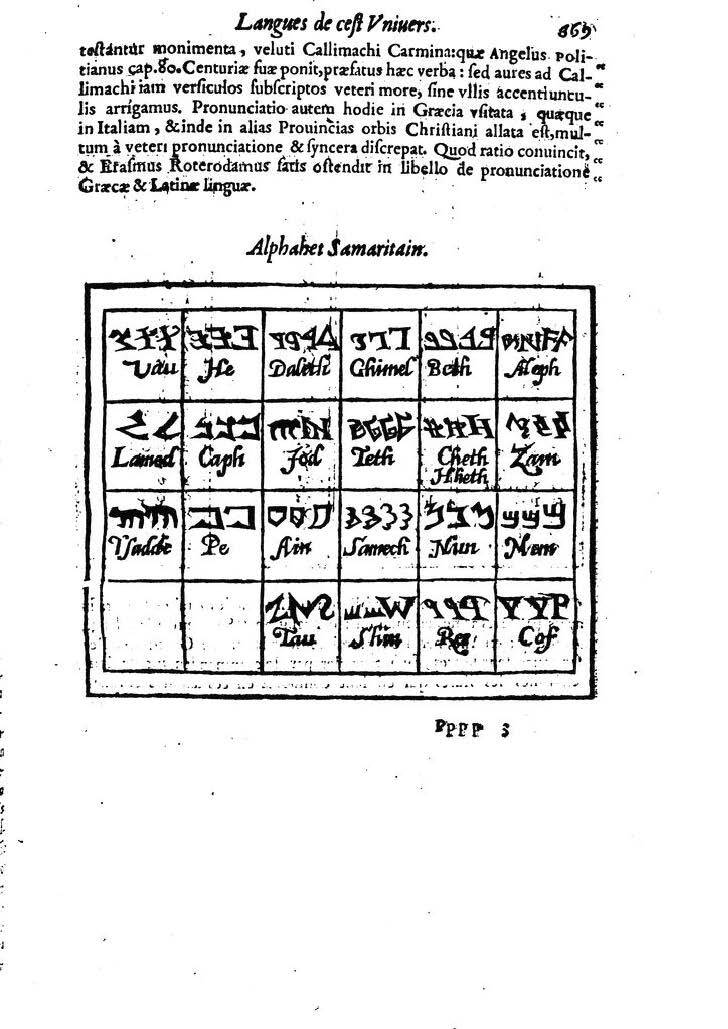 Langues de ceſt Vniuers. 869
teſtantur monimenta, veluti Callimachi Carmina: quæ Angelus Poli-
tianus cap. 80. Centuriæ ſuæ ponit, præfatus hæc verba: ſed aures ad Cal-
limachi iam verſiculos ſubſcriptos veteri more, ſine vllis accentiuncu-
lis arrigamus. Pronunciatio autem hodie in Græcia vſitata, quæque
in Italiam, & inde in alias Prouincias orbis Chriſtiani allata eſt, mul-
tum à veteri pronunciatione & ſyncera diſcrepat. Quod ratio conuincit,
& Eraſmus Roterodamus ſatis oſtendit in libello de pronunciatione
Græcæ & Latinæ linguæ.
Alphabet Samaritain.
Vau He Daleth Ghimel Beth Aleph
Lamed Caph Jod Teth Cheth Zain
Hheth
Tſadde Pe Ain Samech Nun Mem
Tau Shin Res Cof
PPPP 3